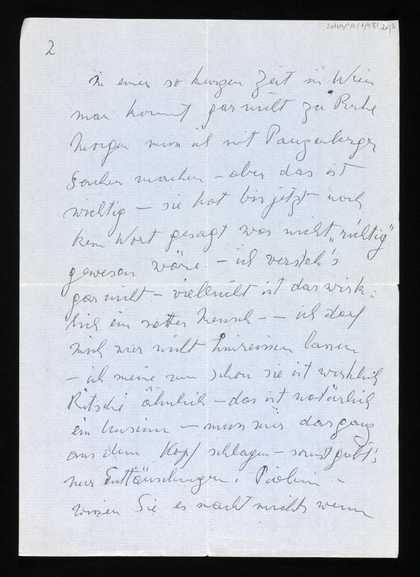 2
in einer so kurzen Zeit in Wien
man kommt gar nicht zu Ruhe
morgen muss ich mit Panzenberger
Sachen machen – aber das ist
wichtig – sie hat bis jetzt noch
kein Wort gesagt was nicht „richtig"
gewesen wäre – ich versteh's
gar nicht – vielleicht ist das wirk-
lich ein netter Mensch – – ich darf
mich nur nicht hinreissen lassen
– ich meine nur schon sie ist wirklich
ähnlich – das ist natürlich
ein – muss mir das ganz
aus dem Kopf schlagen – sonst gibt's
nur Enttäuschungen.
wissen Sie es macht nichts wenn